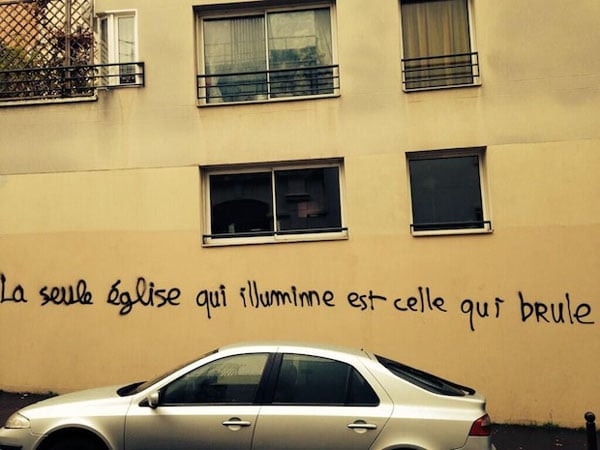 La seule église qui illuminne est celle qui BRule